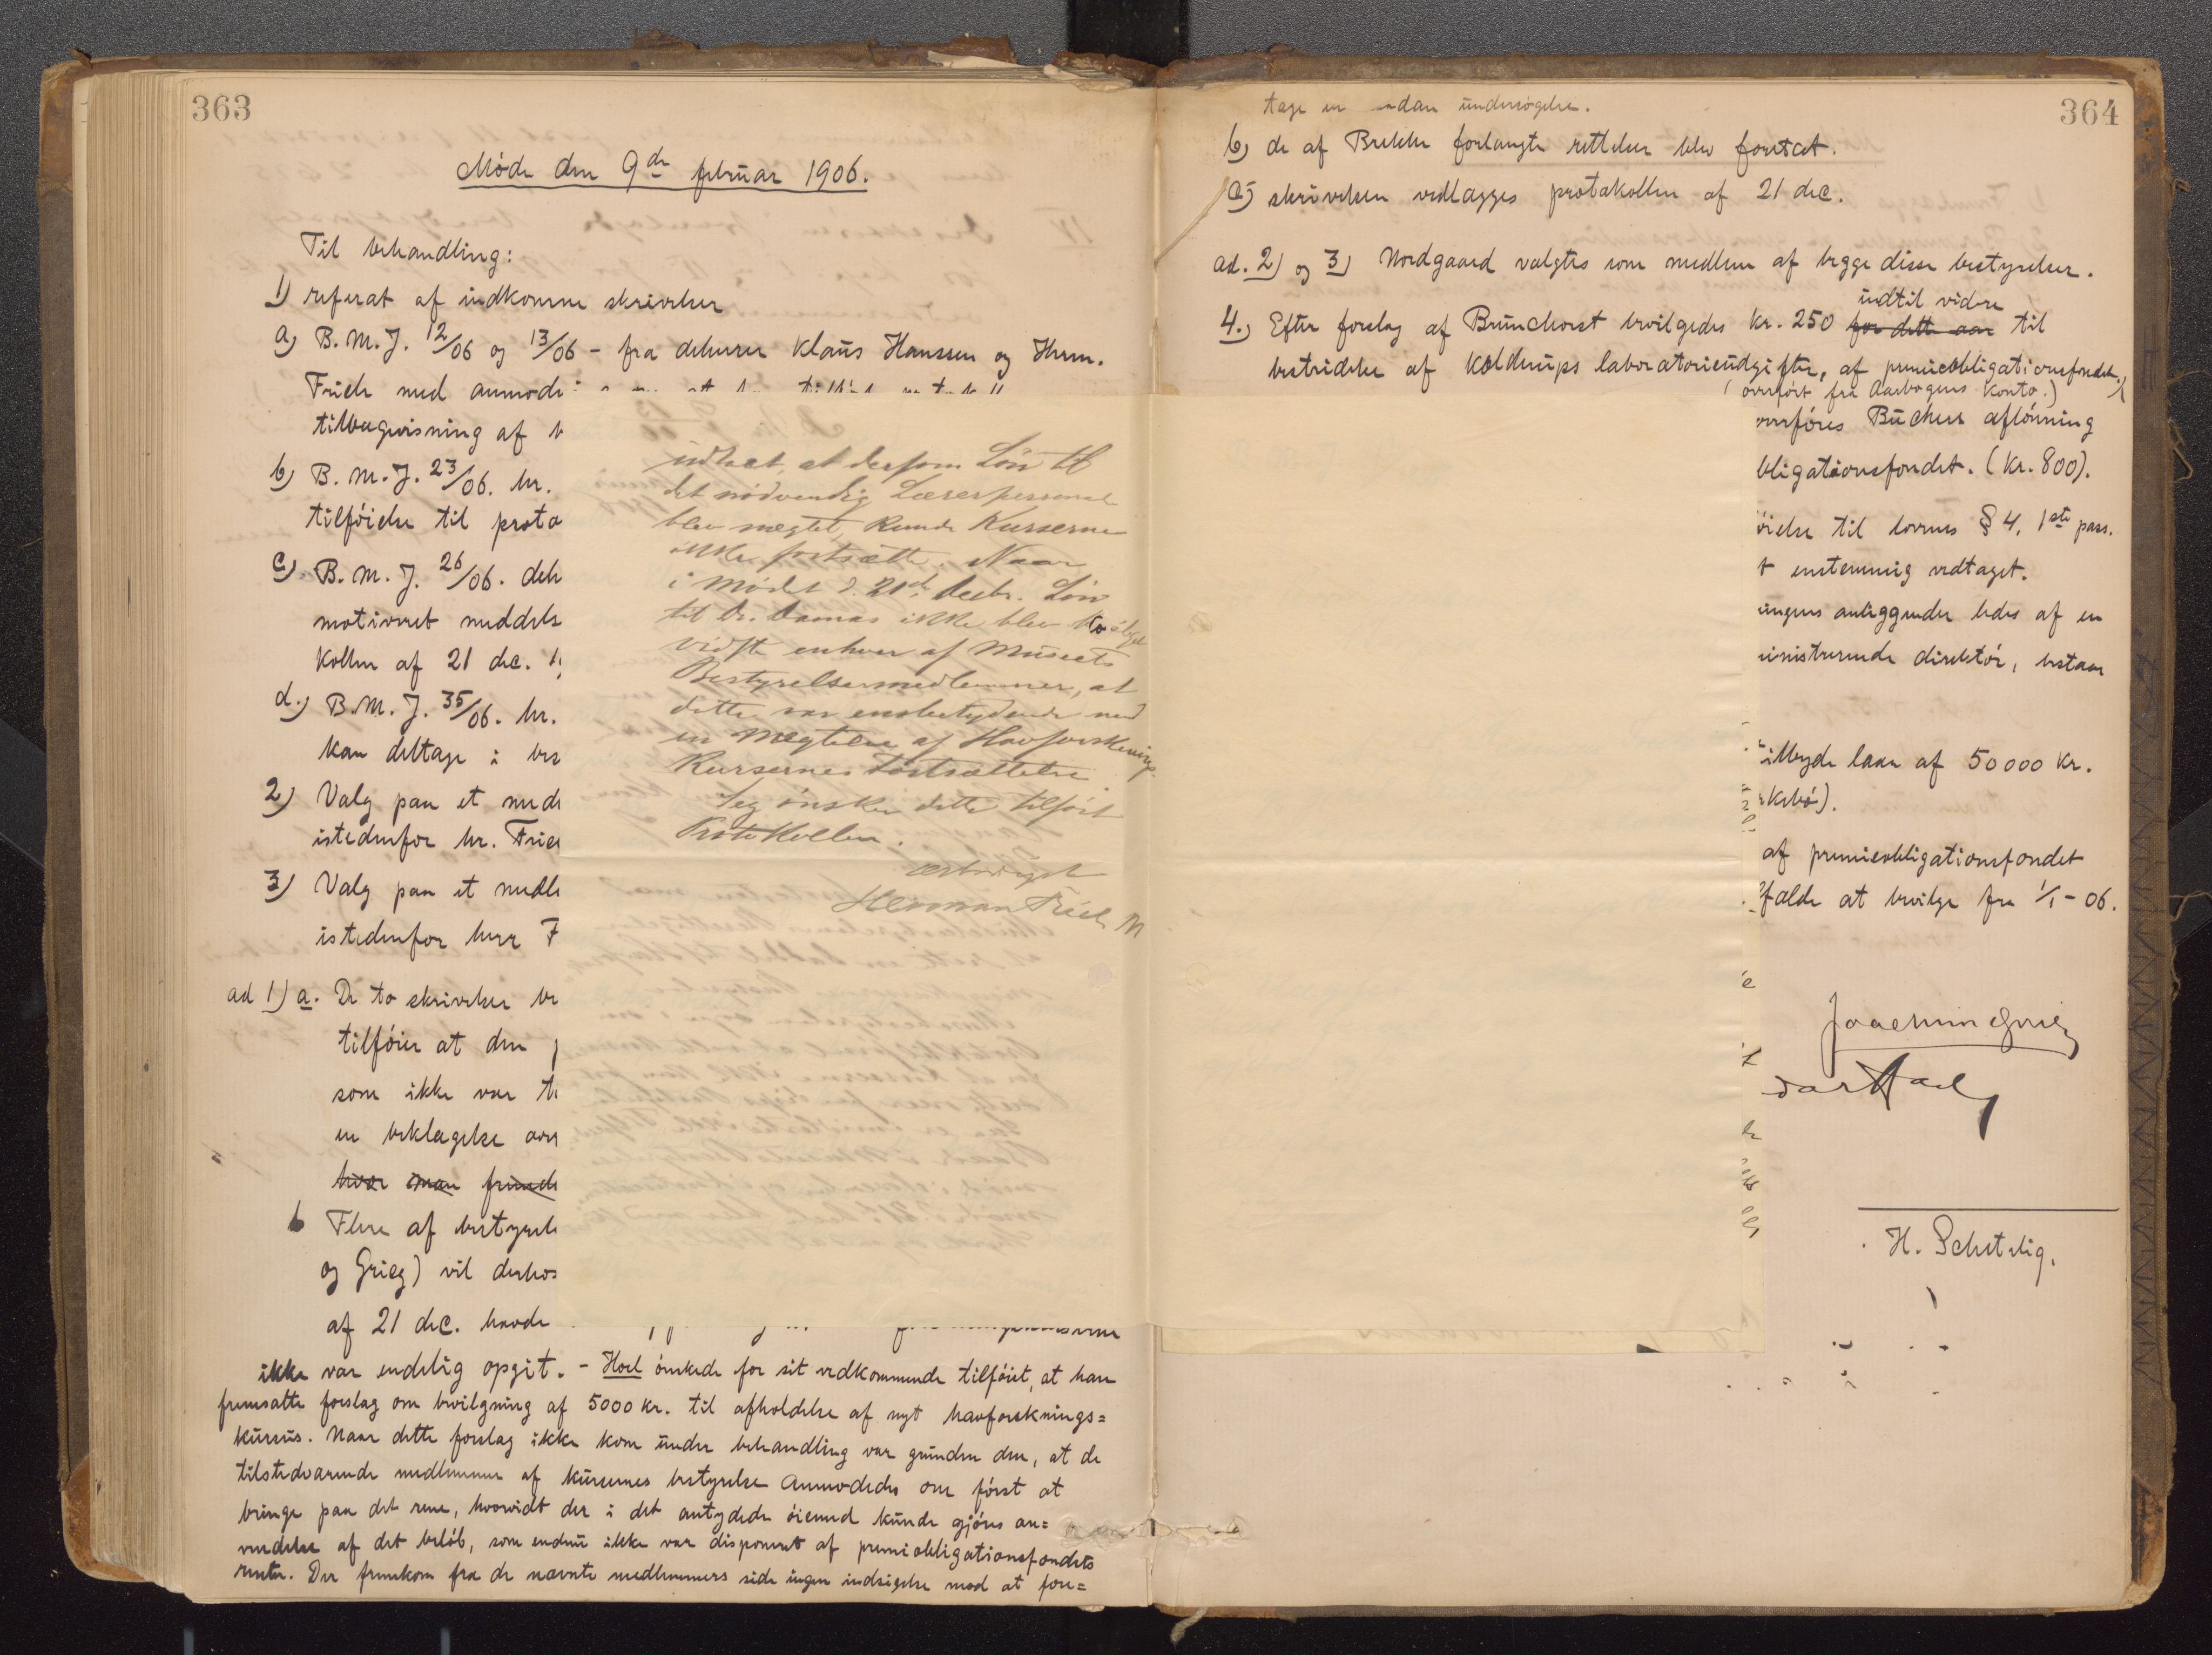 363
Møde den 9de februar 1906.
Til behandling:
1) referat af indkomne skrivelser
a) B. M. J. 12/06 og 13/06 - fra dehrrer Klaus Hanssen og Herm.
Friele med anmod
tilbagevisning af
b) B. M. J. 23/06. hr.
tilføielse til proto
c) B. M. J. 26/06. deh
motiveret meddels
kollen af 21 dec.
d.) B. M. J. 35/06. hr.
kan deltage i bes
2) Valg paa et med
istedenfor hr. Frie
3) Valg paa et medle
istedenfor herr F
ad 1) a. De to skrivelser be
tilføier at den
som ikke var
en beklagelse over
hvor man fremde
b Flere af bestyrels
og Grieg) vil derhos
af 21 dec. havde
ikke var endelig opgit. - Hoel ønskede for sit vedkommende tilføiet, at han
fremsatte forslag om bevilgning af 5000 kr. til afholdelse af nyt havforsknings=
kursus. Naar dette forslag ikke kom under behandling var grunden den, at de
tilstedværende medlemmer af kursernes bestyrelse anmodedes om først at
bringe paa det rene, hvorvidt der i det antydede øiemed kunde gjøres an=
vendelse af det beløb, som endnu ikke var disponeret af premieobligationsfondets
renter. Der fremkom fra de nævnte medlemmers side ingen indsigelse mod at fore=
udtalt, at dersom Løn til
det nødvendig Lærerpersonal
blev nægtet, kunde Kurserne
ikke fortsætte. Naar
i Mødet d. 21de Decbr. Løn
til Dr. Damas ikke blev
vidste enhver af Museets
Bestyrelsesmedlemmer, at
dette var ensbetydende med
en Nægtelse af Havforsknings
Kursernes Fortsættelse
Jeg ønsker dette tilført
Protokollen.
Ærbødigst
Herman Friele
364
tage en sådan undersøgelse.
b) de af Brekke forlangte rettelser blev foretat.
c) skrivelsen vedlægges protokollen af 21 dec.
ad. 2) og 3) Nordgaard valgtes som medlem af begge disse bestyrelser.
indtil videre
4.) Efter forslag af Brunchorst bevilgedes kr. 250 for dette aar til
bestridelse af Kolderups laboratorieudgifter, af premieobligationsfondet.
(overført fra Aarbogens konto.)
overføres Büchers aflønning
bligationsfondet. (kr. 800).
øielse til lovens § 4, 1ste pass.
t enstemmig vedtaget.
ingens anliggender ledes af en
ministrerende direktør, bestaar
tilbyde laan af 50000 kr.
kebø).
af premieobligationsfondet
fælde at bevilge fra 1/1 - 06.
Joachim Grieg
H. Schetelig.